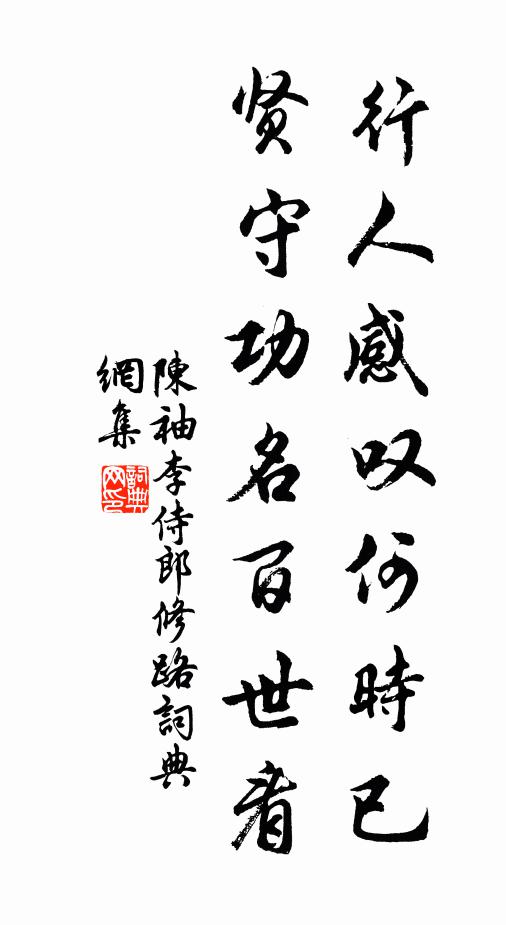 行人感叹何時已
贤守功名百世看
陳袖李侍郎修路詞典
網集
詞典
网印